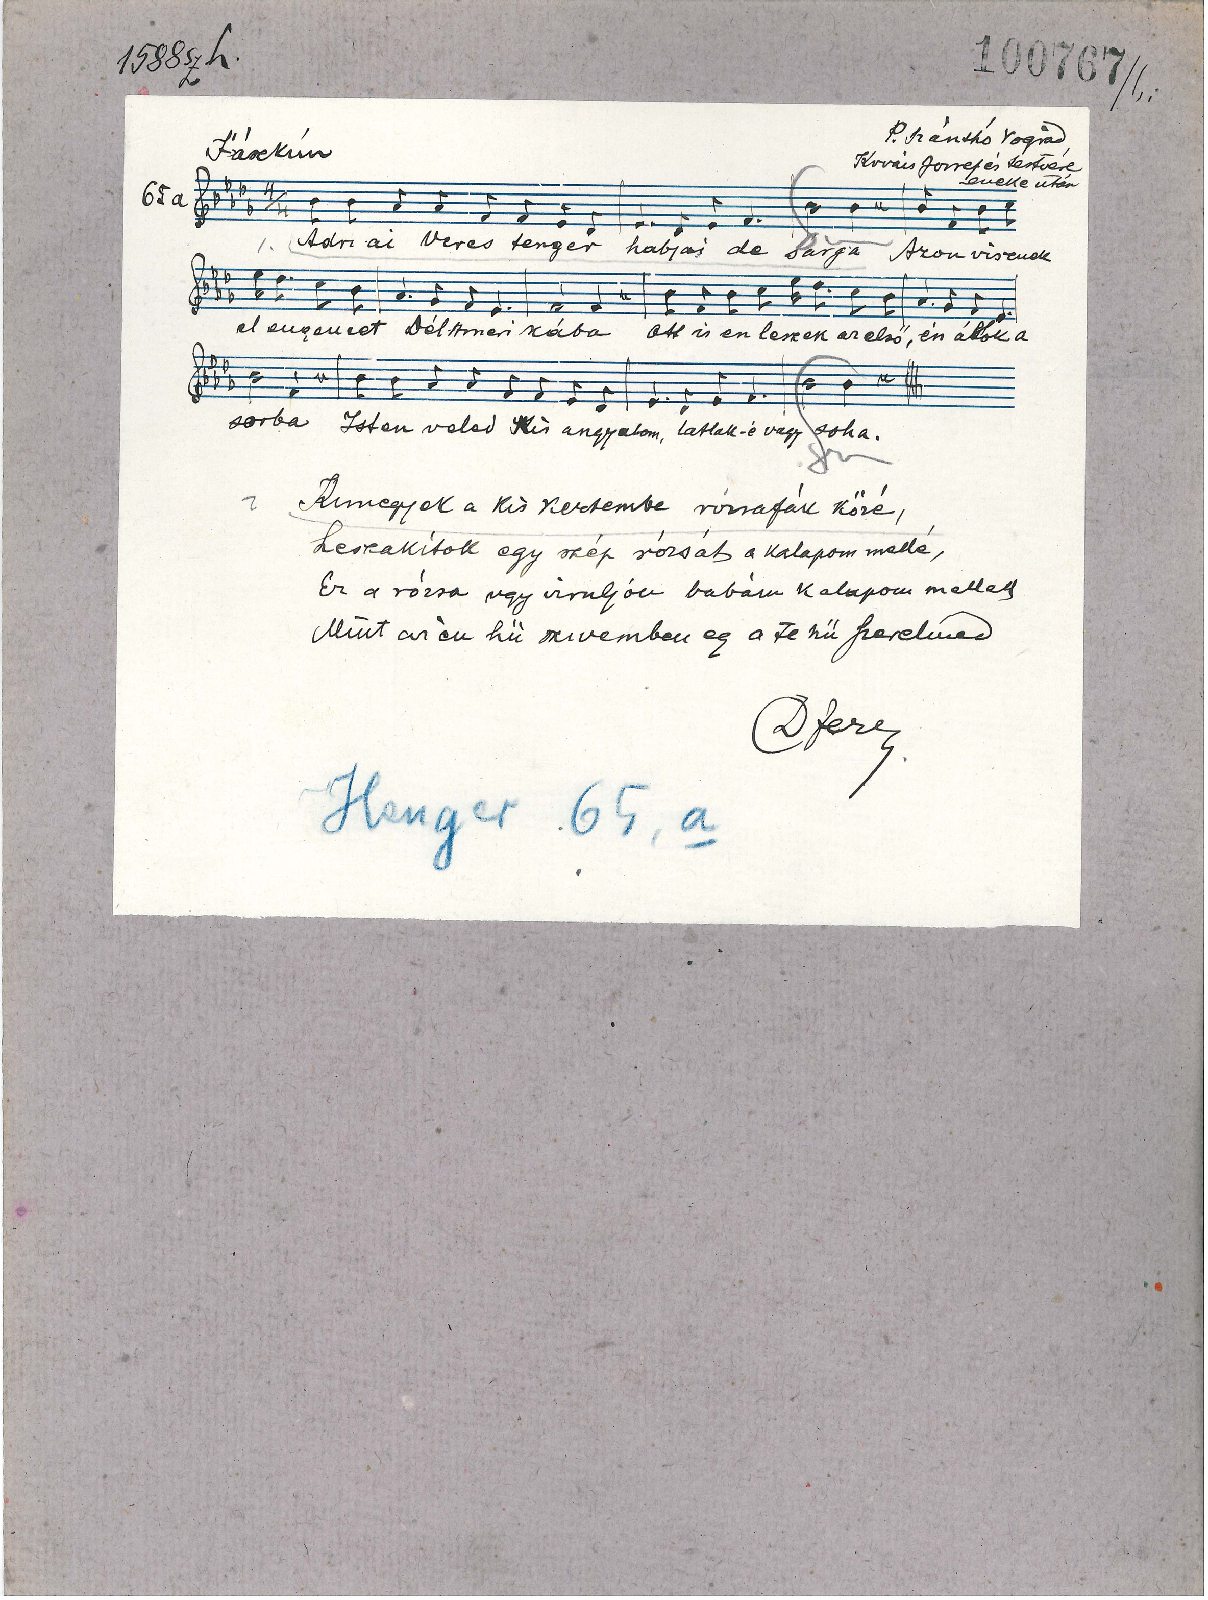 1588 sz h.
100767/1.
P. Szánthó Nográd
Kovács József és testvére
éneke után
65 a
1. Adri ai Veres tenger habjai de Sárga Azon visznek
el engemet Dél Ameri kába Ott is en leszek az első, én állok a
sorba Isten veled Kis angyalom, latlak-é vagy soha.
2 Kimegyek a kis kertembe rózsafák közé,
Leszakítok egy szép rózsát a kalapom mellé,
Ez a rózsa ugy viruljón babám kalapom mellett
Mint az én hü szivemben eg a te hü szerelmed
Henger 65, a